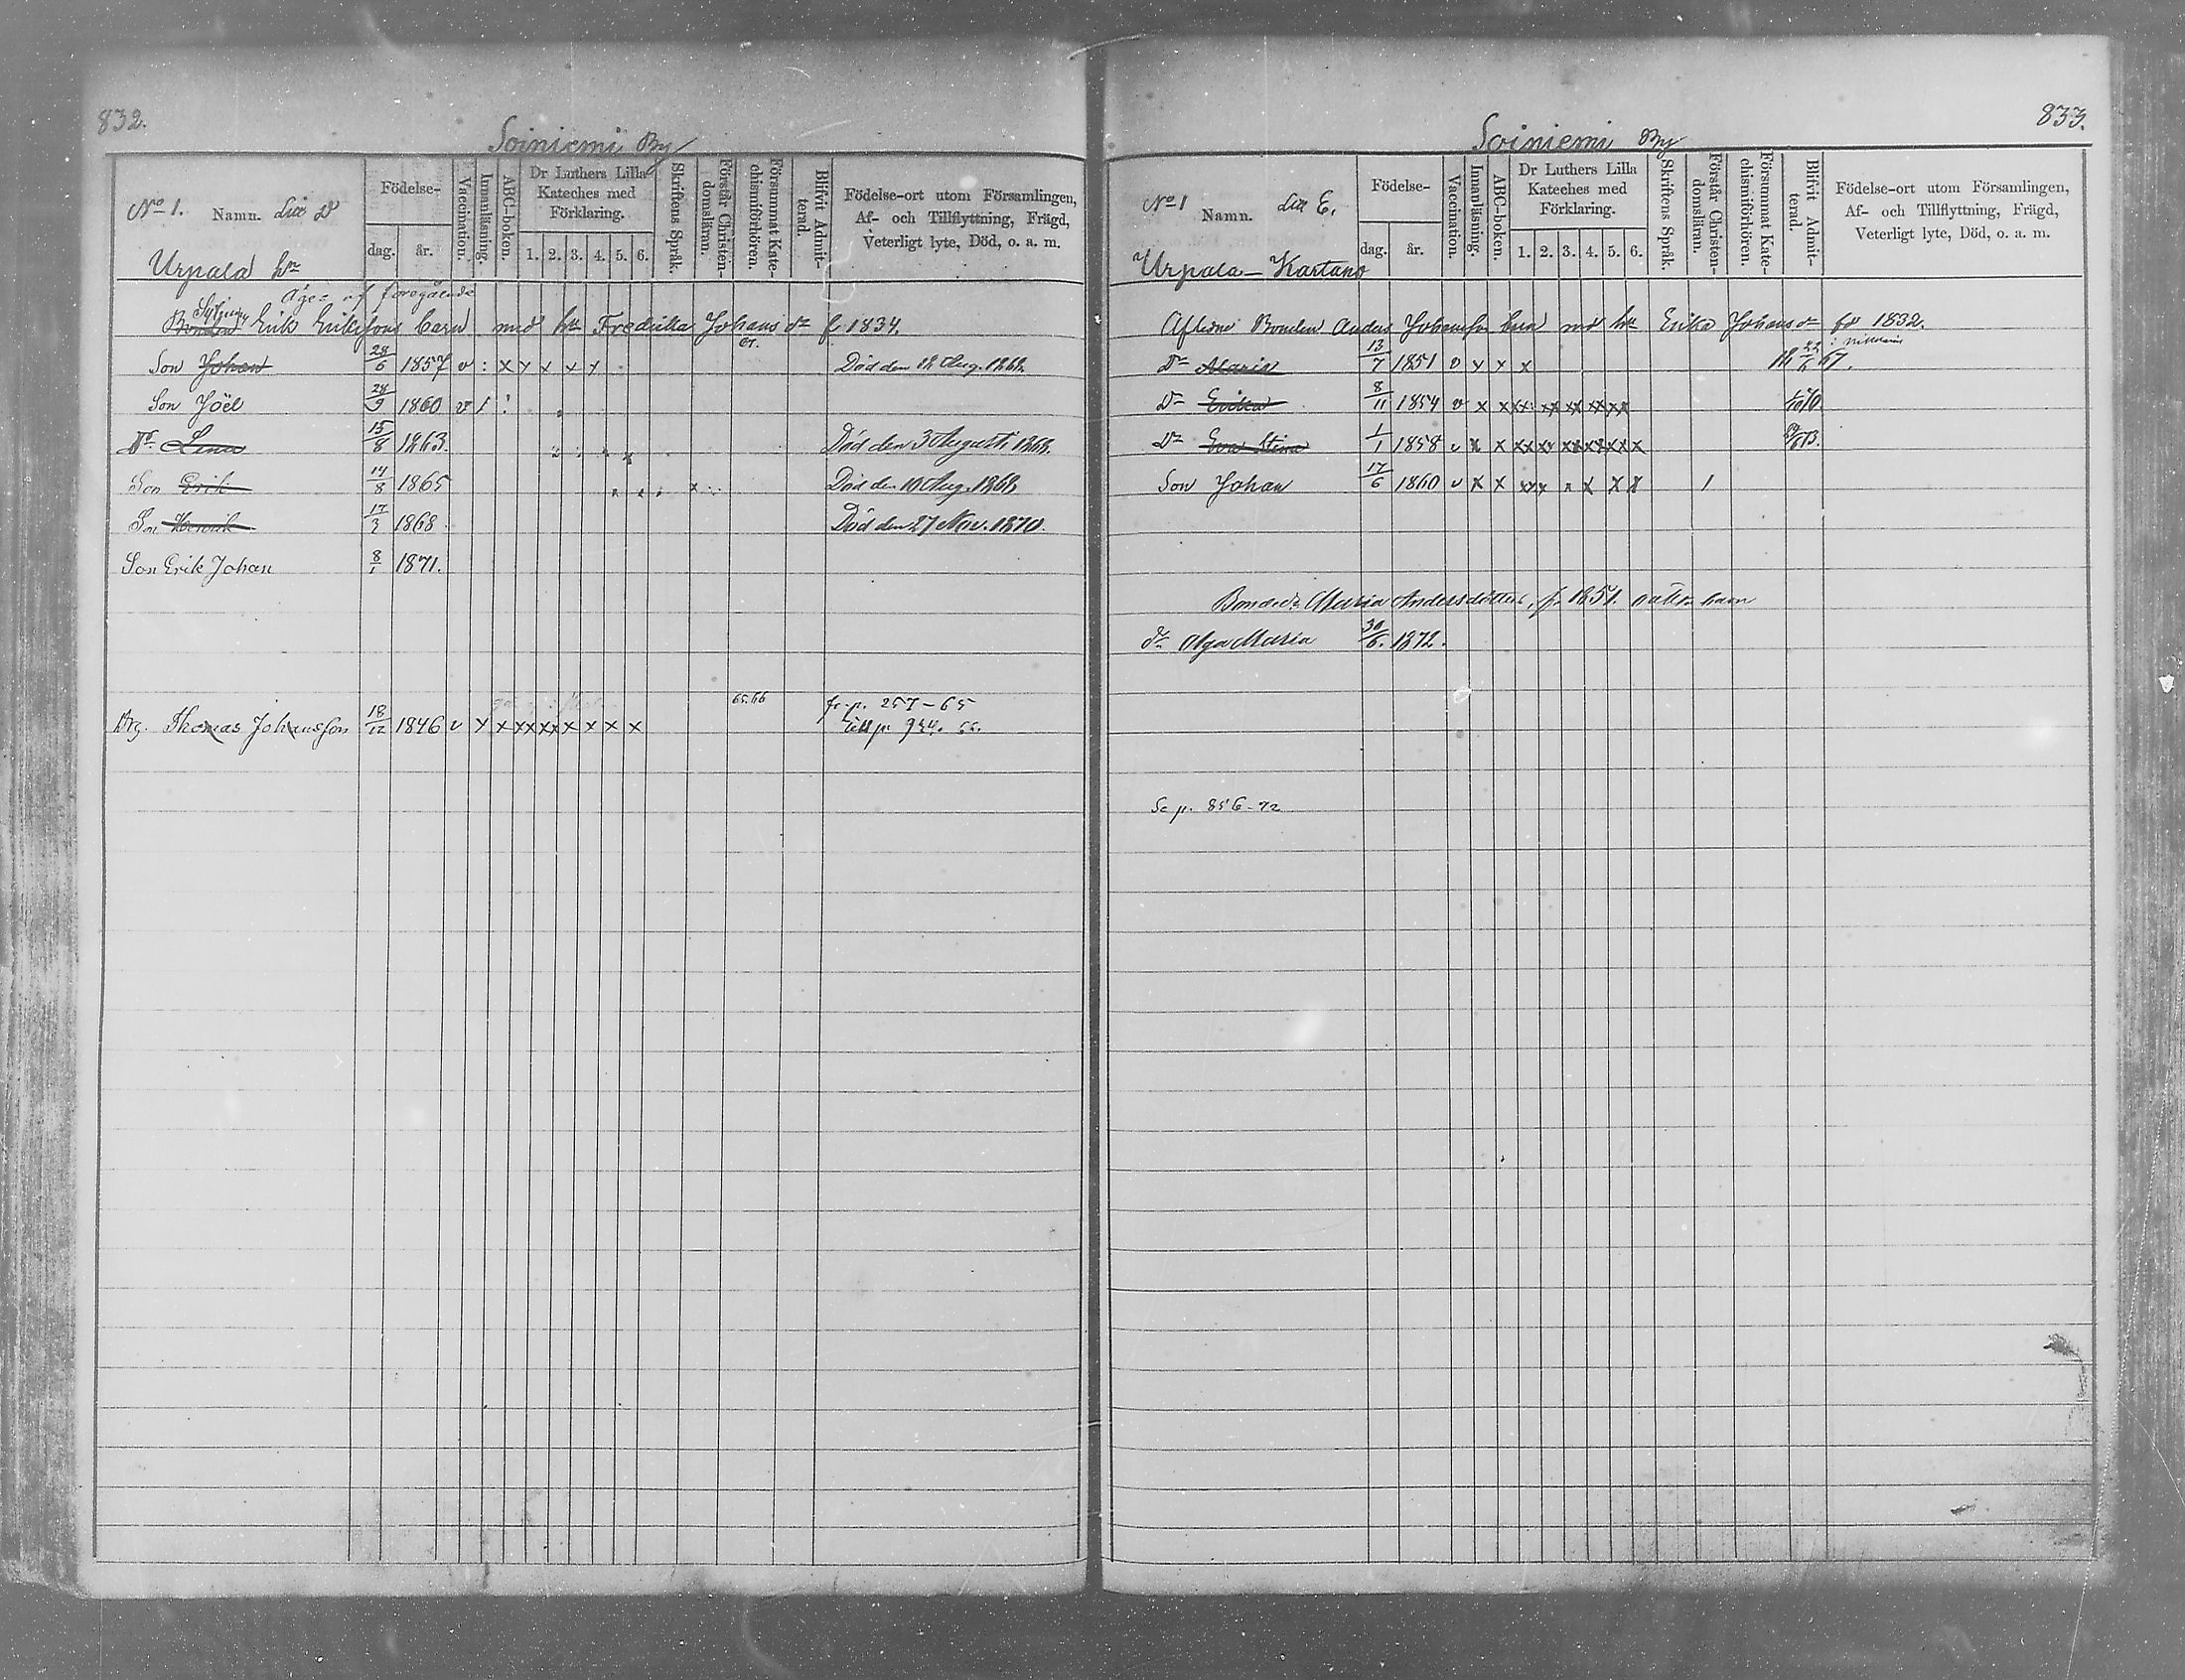 832.
Soiniemi By
No 1. Namn. Litt D
Födelse-
dag. år.
Vaccination.
Innanläsning.
ABC-boken.
Dr Luthers Lilla
Kateches med
Förklaring.
1. 2. 3. 4. 5. 6.
Skriftens Språk.
Förstår Christen-
domsläran.
Försummat Kate-
chismiförhören.
Blifvit Admit-
terad.
Födelse-ort utom Församlingen,
Af- och Tillflyttning, Frägd,
Veterligt lyte, Död, o. a. m.
Urpala
af föregående
Bonden Erik Eriksons barn med hu Fredrika Johans dr f. 1834.
67.
Son Johan 28/6 1857 v : x x x x x Död den 12 Aug. 1868.
Son Joel 28/9 1860 v 1
Dr Lena 15/8 1863. Död den 3 Augusti 1868.
Son Erik 14/8 1865 Död den 10 Aug. 1868
Son Henrik 17/3 1868 Död den 27 Nov. 1870.
Son Erik Johan 8/1 1871.
65.66 fr. p. 257-65
Drg. Thomas Johansson 18/12 1846 v x x x x x x x x x x till p. 934. 66.
833.
Soiniemi By
No 1 Namn. Litt E.
Födelse-
dag. år.
Vaccination.
Innanläsning.
ABC-boken.
Dr Luthers Lilla
Kateches med
Förklaring.
1. 2. 3. 4. 5. 6.
Skriftens Språk.
Förstår Christen-
domsläran.
Försummat Kate-
chismiförhören.
Blifvit Admit-
terad.
Födelse-ort utom Församlingen,
Af- och Tillflyttning, Frägd,
Veterligt lyte, Död, o. a. m.
Urpala-Kartano
Aflidne Bonden Anders Johansson barn med hu Erika Johans dr fö 1832.
Dr Maria 13/7 1851 v x x x 22/6 67.
Dr Erika 8/11 1854 v x x xx xx xx xx xx
Dr Eva Stina 1/1 1858 v x x xx xx xx xx x x
Son Johan 17/6 1860 v x x xxx x x x x 1
Bonded. Maria Andersdotters, f. 1851. oäkta barn
dr Olga Maria 30/6. 1872.
Se p. 856-72